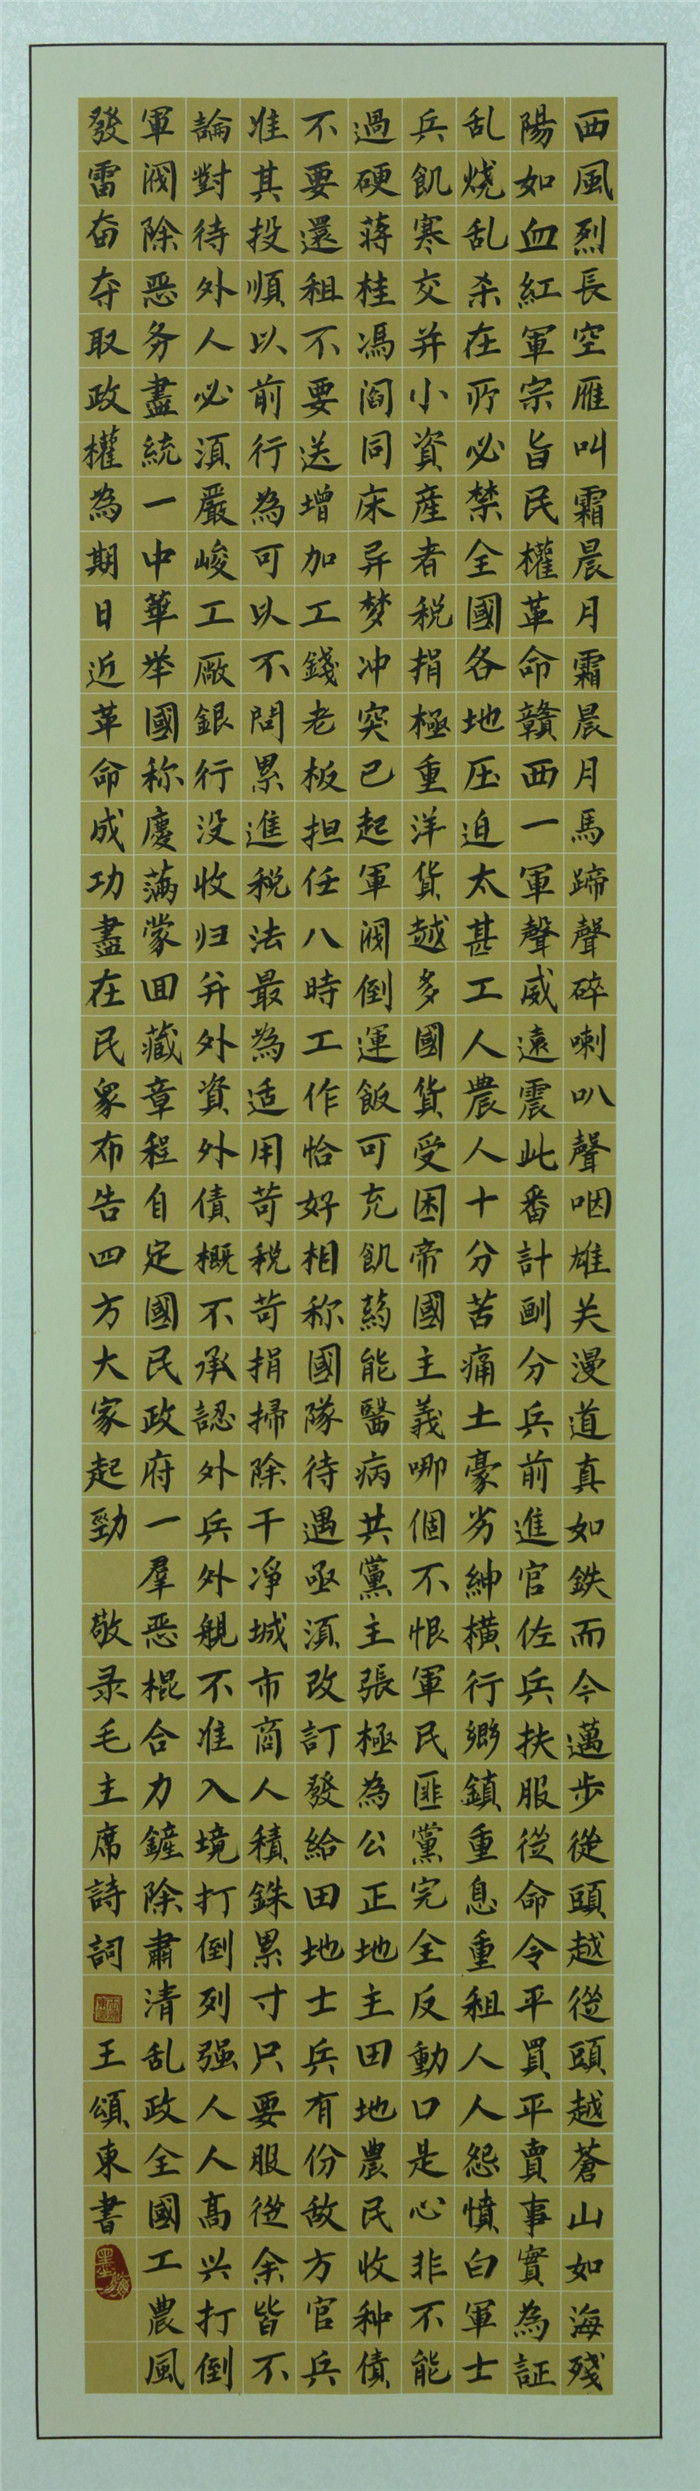 西風烈長空雁叫霜晨月霜晨月馬蹄聲碎喇叭聲咽雄关漫道真如鉄而今邁步從頭越從頭越蒼山如海殘
陽如血紅軍宗旨民權革命贛西一軍聲威遠震此番計劃分兵前進官佐兵扶服從命令平買平賣事實為証
乱燒乱杀在所必禁全國各地压迫太甚工人農人十分苦痛土豪劣紳橫行鄉鎮重息重租人人怨憤白軍士
兵飢寒交并小資產者税捐極重洋貨越多國貨受困帝國主義哪個不恨軍民匪黨完全反動口是心非不能
過硬蒋桂馮閻同床异梦冲突已起軍阀倒運飯可充飢葯能醫病共黨主張極為公正地主田地農民收种債
不要還租不要送增加工錢老板担任八時工作恰好相称國隊待遇亟須改訂發給田地士兵有份敌方官兵
准其投順以前行為可以不問累進税法最為适用苛税苛捐掃除干凈城市商人積銖累寸只要服從余皆不
論對待外人必須嚴峻工厰銀行没收归并外資外債概不承認外兵外舰不准入境打倒列强人人高兴打倒
軍阀除恶务盡統一中華举國称慶满蒙回藏章程自定國民政府一羣恶棍合力鏟除肅清乱政全國工農風
發雷奋夺取政權為期日近革命成功盡在民眾布告四方大家起勁 敬录毛主席詩詞 王頌東書